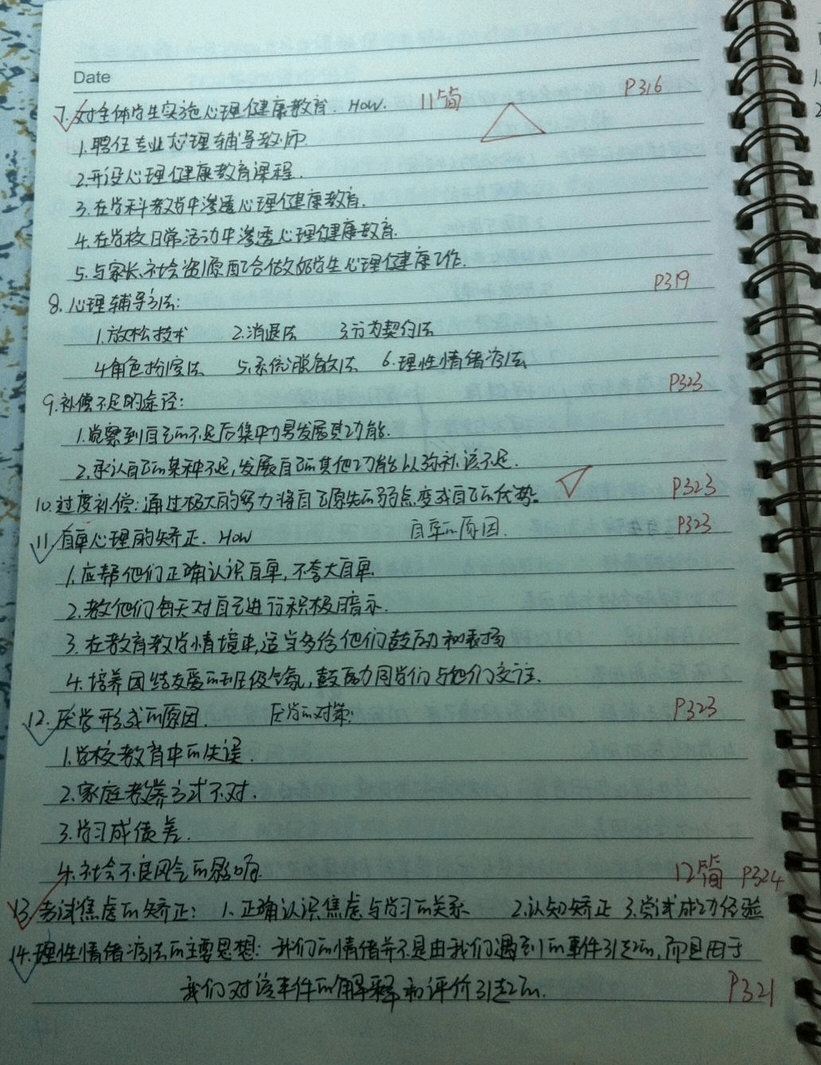 Date
7. 对全体学生实施心理健康教育. How. 11简 P316
1.聘任专业心理辅导教师
2.开设心理健康教育课程.
3.在学科教学中渗透心理健康教育.
4.在学校日常活动中渗透心理健康教育.
5.与家长、社会资源配合做好学生心理健康工作.
8.心理辅导方法: P319
1.放松技术 2.消退法 3.行为契约法
4.角色扮演法 5.系统脱敏法 6.理性情绪疗法
9.补偿不足的途径: P323
1.觉察到自己的不足后集中力量发展其功能.
2.承认自己的某种不足,发展自己的其他功能以弥补该不足.
10.过度补偿:通过极大的努力将自己原先的弱点变成自己的优势。 P323
11.自卑心理的矫正. How 自卑的原因. P323
1.应帮他们正确认识自卑,不夸大自卑
2.教他们每天对自己进行积极暗示.
3.在教育教学情境中,适当多给他们鼓励和表扬
4.培养团结友爱的班级气氛,鼓励同学们与他们交往.
12.厌学形成的原因. 厌学的对策: P323
1.学校教育中的失误.
2.家庭教养方式不对.
3.学习成绩差.
4.社会不良风气的影响. 12简 P324
13.考试焦虑的矫正: 1.正确认识焦虑与学习的关系 2.认知矫正 3.尝试成功经验
14.理性情绪疗法的主要思想:我们的情绪并不是由我们遇到的事件引起的,而是由于
我们对该事件的解释和评价引起的. P321